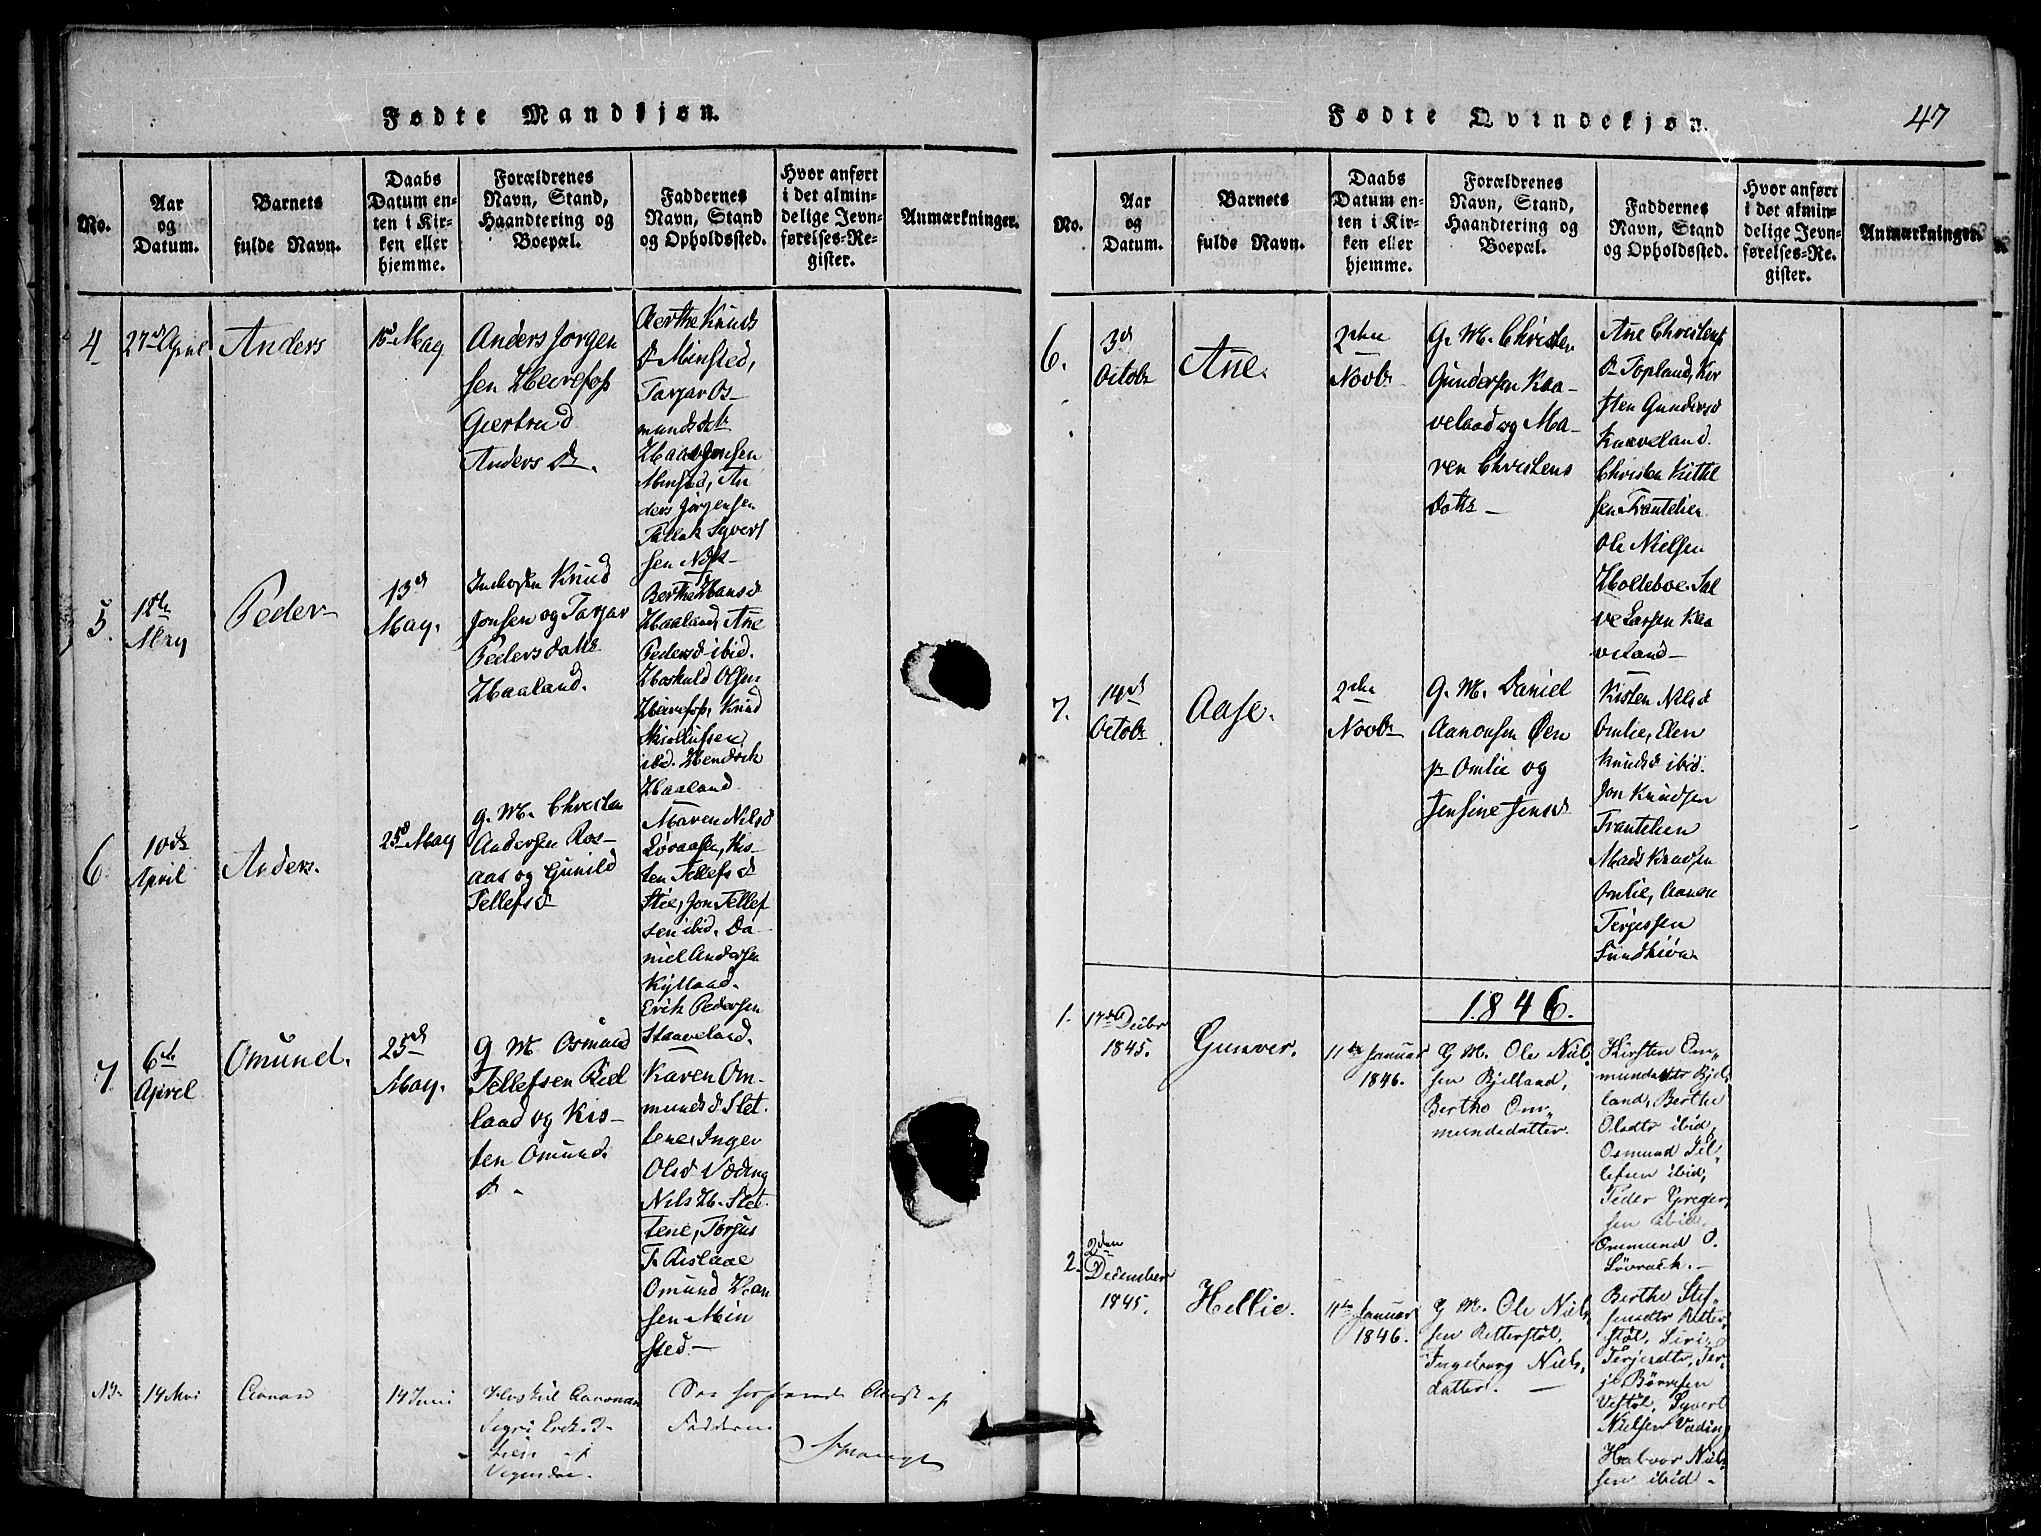 Fødte Mandkjøn.
No.
Aar
og
Datum.
Barnets
fulde Navn.
Daabs
Datum en-
ten i Kir-
ken eller
hjemme.
Forældrenes
Navn, Stand,
Haandtering og
Boepæl.
Faddernes
Navn, Stand
og Opholdssted.
Hvor anført
i det almin-
delige Jevn-
førelses-Re-
gister.
Anmærkninger.
4
27de April
Anders
18d May
Anders Jorgen
sen Heirefos
Giertrud
Anders Dr.
Berthe Knuds
Dr Minsted,
Targar Os-
mundsdtr
Minsted, An
ders Jørgensen
Tallak Syvert
sen
5.
12te
May
Peder
13d
May.
Knud
Jonsen og Targar
Pedersdattr
Haaland.
Berthe Hansd
Haaland, Ane
Pedersd ibid.
Haskuld Olsen
Heirefos, Knud
ibd. Hendrik
Haaland
6
10de
April
Anders.
25d May
G. M. Christen
Andersen Ros-
aas og Gunild
Tellefsd
Maren Nilsd
Løvaasen, Kis-
ten Tellefsd
Stie, Jon Tellef
sen ibid. Da-
niel Andersen
Kylland.
Erik Pedersen
Staaveland.
7
6te
Apirel
Omund.
25d
May.
G M Osmund
Tellefsen Biel
land og Kis-
ten Omund.
d.
Karen Om-
mundsd Slet
tene, Inger
Olsd Væding
Nils H. Slet
tene, Torjus
T. Rislaae
Omund Han
sen Min
sted.
14 Mai
Aanon
14 Juni
Aanonsen
Sigri Erik. D.
Lien
Faddern
Fødte Qvindekjøn.
47
No.
Aar
og
Datum.
Barnets
fulde Navn.
Daabs
Datum en-
ten i Kir-
ken eller
hjemme.
Forældrenes
Navn, Stand,
Haandtering og
Boepæl.
Faddernes
Navn, Stand
og Opholdssted.
Hvor anført
i det almin-
delige Jevn-
førelses-Re-
gister.
Anmærkninger.
6.
3d
Octobr
Ane.
2den
Novbr
G. M. Christen
Gundersen Kaa-
veland og Ma-
ren Christens
Dattr
Ane Christens
Dr Topland, Kir
sten Gundersd
Kaaveland.
Christen Kittel
sen Trantelien
Ole Nielsen
Holteboe Sal
ve Larsen Kaa
veland
7.
14d
Octobr
Aase.
2den
Novbr
G. M. Daniel
Aanonsen Øen
pr Omlie og
Jensine Jensd
Kisten Nilsd
Omlie, Elen
Knudsd ibid.
Jon Knudsen
Trantelien
Mads Knudsen
Omlie, Aanon
Terjessen
Sundhiøn
1846.
1.
17de Decbr
1845.
Gunver.
11te Januar
1846.
G M. Ole Niel
sen Bjelland,
Berthe Om„
mundsdatter.
Kirsten Om„
mundsdatter Bjel
land, Berthe
Olsdtr ibid,
Osmund Tel
lefsen ibid,
Peder Greger
sen ibid,
Ommund O.
Løvraek.
2.
2den
December
1845.
Hellie.
11te Januar
1846.
G M. Ole Niel
sen Retterstøl,
Ingeborg Niels
datter.
Berthe Stef
fensdtr Retter
støl, Siri
Terjesdtr, Ter
je Børresen
Vestøl, Syvert
Nielsen Væding
Halvor Niel
sen ibid